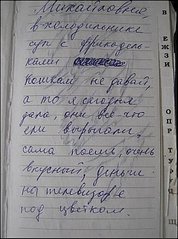 Михайловна,
в холодильнике
суп с фрикадель-
ками
кошкам не давай,
а то я сегодня
дала, они всё что
ели выблевали.
сама поешь, очень
вкусный, деньги
на телевизоре
под цветком.
В
Е
Ж З И
О
П Р
Т У
Щ